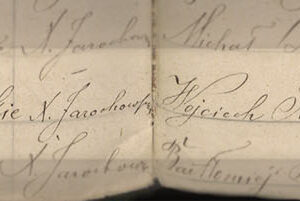 N. Jarochow Michał
ie N. Jarochowski Wojciech
N. Jarochow Bartłomiej